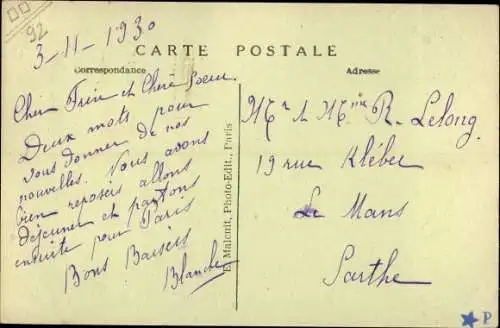 92
3-11-1930
CARTE POSTALE
Correspondance
Adresse
Cher Frère et Chère Soeur
Deux mots pour
vous donner de nos
nouvelles. Nous avons
bien reposés allons
déjeuner et partons
ensuite pour Paris
Bons Baisers
Blanche
E. Malcuit, Photo-Edit., Paris
Mr & Mme R. Lelong
19 rue Kléber
Le Mans
Sarthe
P